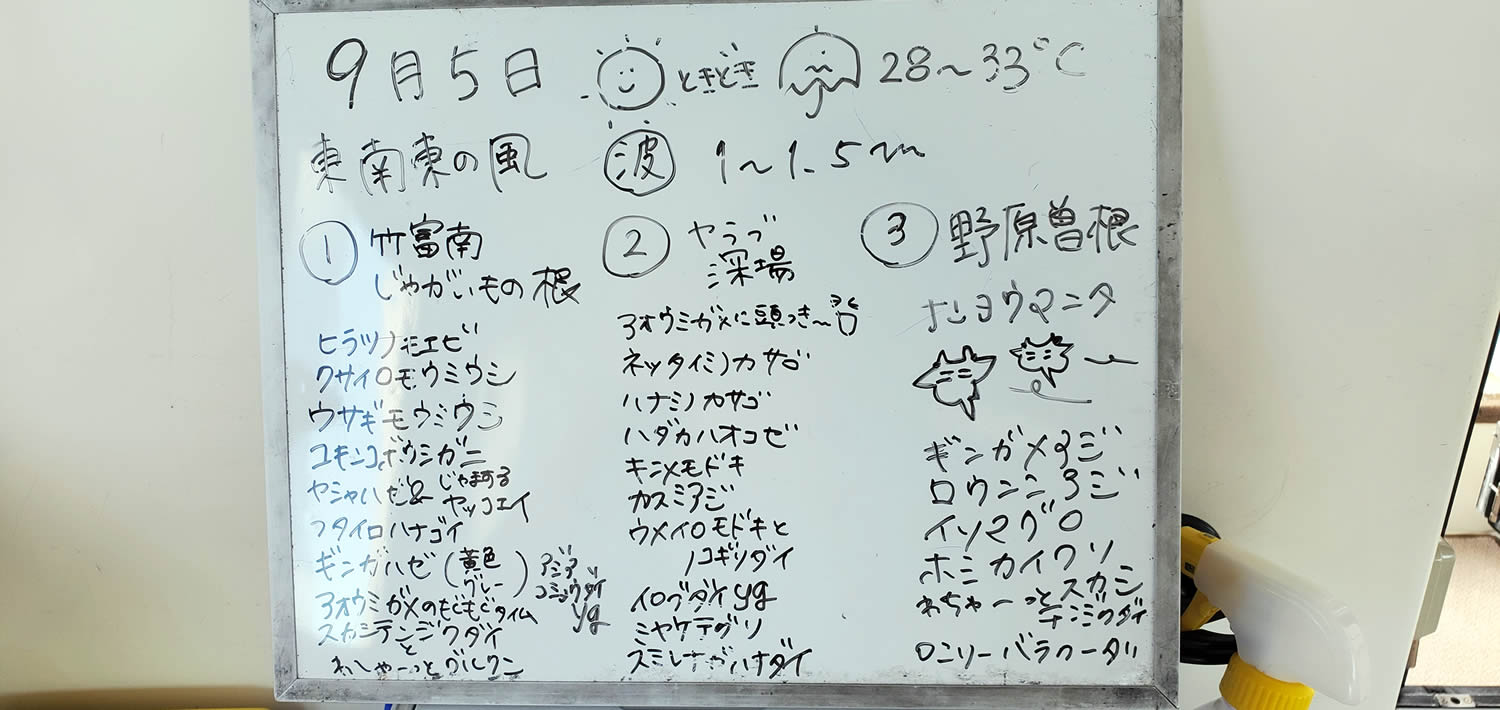 9月5日 ときどき 28〜33℃
東南東の風 波 1〜1.5m
① 竹富南
じゃがいもの根
ヒラツノモエビ
クサイロモウミウシ
ウサギモウミウシ
ユキンコボウシガニ
ヤシャハゼ& じゃまする
ヤッコエイ
フタイロハナゴイ
ギンガハゼ(黄色
グレー)
アジア
コショウダイ
yg
アオウミガメのもぐもぐタイム
スカシテンジクダイ
と
わしゃーっとグルクン
② ヤラブ
深場
アオウミガメに頭つき〜
ネッタイミノカサゴ
ハナミノカサゴ
ハダカハオコゼ
キンメモドキ
カスミアジ
ウメイロモドキと
ノコギリダイ
イロブダイyg
ミヤケテグリ
スミレナガハナダイ
③ 野原曽根
ナンヨウマンタ
ギンガメアジ
ロウニンアジ
イソマグロ
ホシカイワリ
わちゃーっとスカシ
テンジクダイ
ロンリーバラクーダ